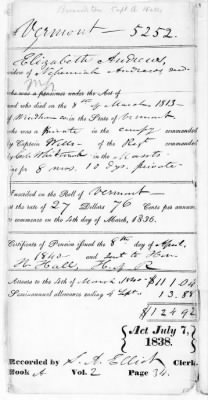 Vermont - 5252.
Elizabeth Andrews,
widow of Nehemiah Andrews
who was a pensioner under the Act of
and who died on the 8th of March 1813-
of Windham in the State of Vermont
who was a private in the company commanded
by Captain Wills of the Regt commanded
by in the Masstts
for 8 mos. 10 dys. private
Inscribed on the Roll of Vermont
at the rate of 27 Dollars 76 Cents per annum,
to commence on the 4th day of March, 1836.
Certificate of Pension issued the 8th day of April.
1840 and sent to Hon
H. Hall, H. R.
Arrears to the 4th of March 1840 $111.04
Semi-annual allowance ending 4 Sept. 13.88
$124.92
Act July 7,
1838.
Recorded by S. A. Elliot Clerk,
Book A Vol. 2 Page 34.